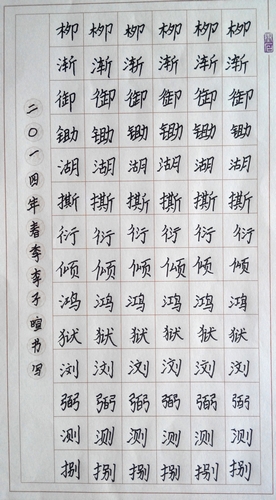 柳柳柳柳柳柳
渐渐渐渐渐渐
御御御御御御
锄锄锄锄锄锄
湖湖湖湖湖湖
撕撕撕撕撕撕
衍衍衍衍衍衍
倾倾倾倾倾倾
鸿鸿鸿鸿鸿鸿
狱狱狱狱狱狱
浏浏浏浏浏浏
弼弼弼弼弼弼
测测测测测测
捌捌捌捌捌捌
二〇一四年春季李子暄书写